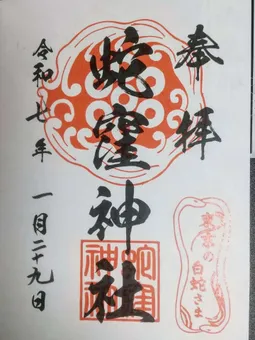 奉拝
蛇窪神社
令和七年
一月二十九日
東京の
白蛇さま
蛇窪
神社